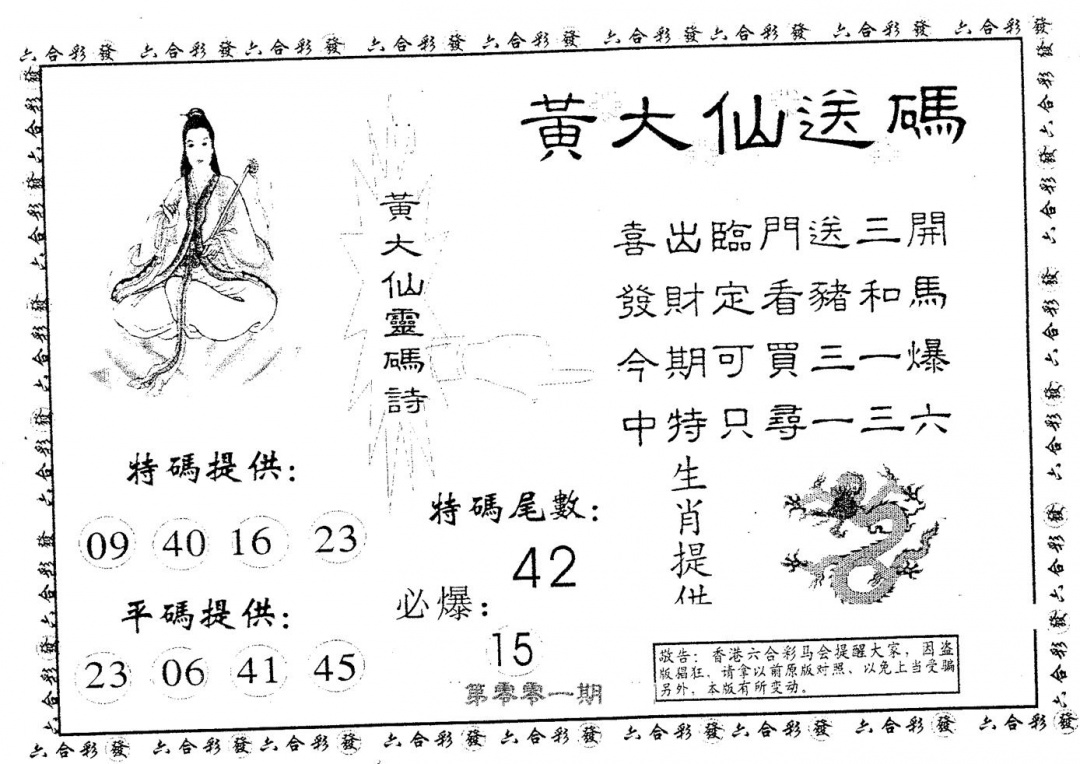 六合彩發 六合彩發 六合彩發 六合彩發 六合彩發 六合彩發 六合彩發 六合彩發 六合彩發
黃大仙送碼
黃大仙靈碼詩
喜出臨門送三開
發財定看豬和馬
今期可買三一爆
中特只尋一三六
特碼提供：
09 40 16 23
平碼提供：
23 06 41 45
特碼尾數：
42
必爆：
15
第零零一期
生肖提供
敬告：香港六合彩马会提醒大家，因盗
版猖狂，请拿以前原版对照，以免上当受骗
另外，本版有所变动。
六合彩發 六合彩發 六合彩發 六合彩發 六合彩發 六合彩發 六合彩發 六合彩發 六合彩發